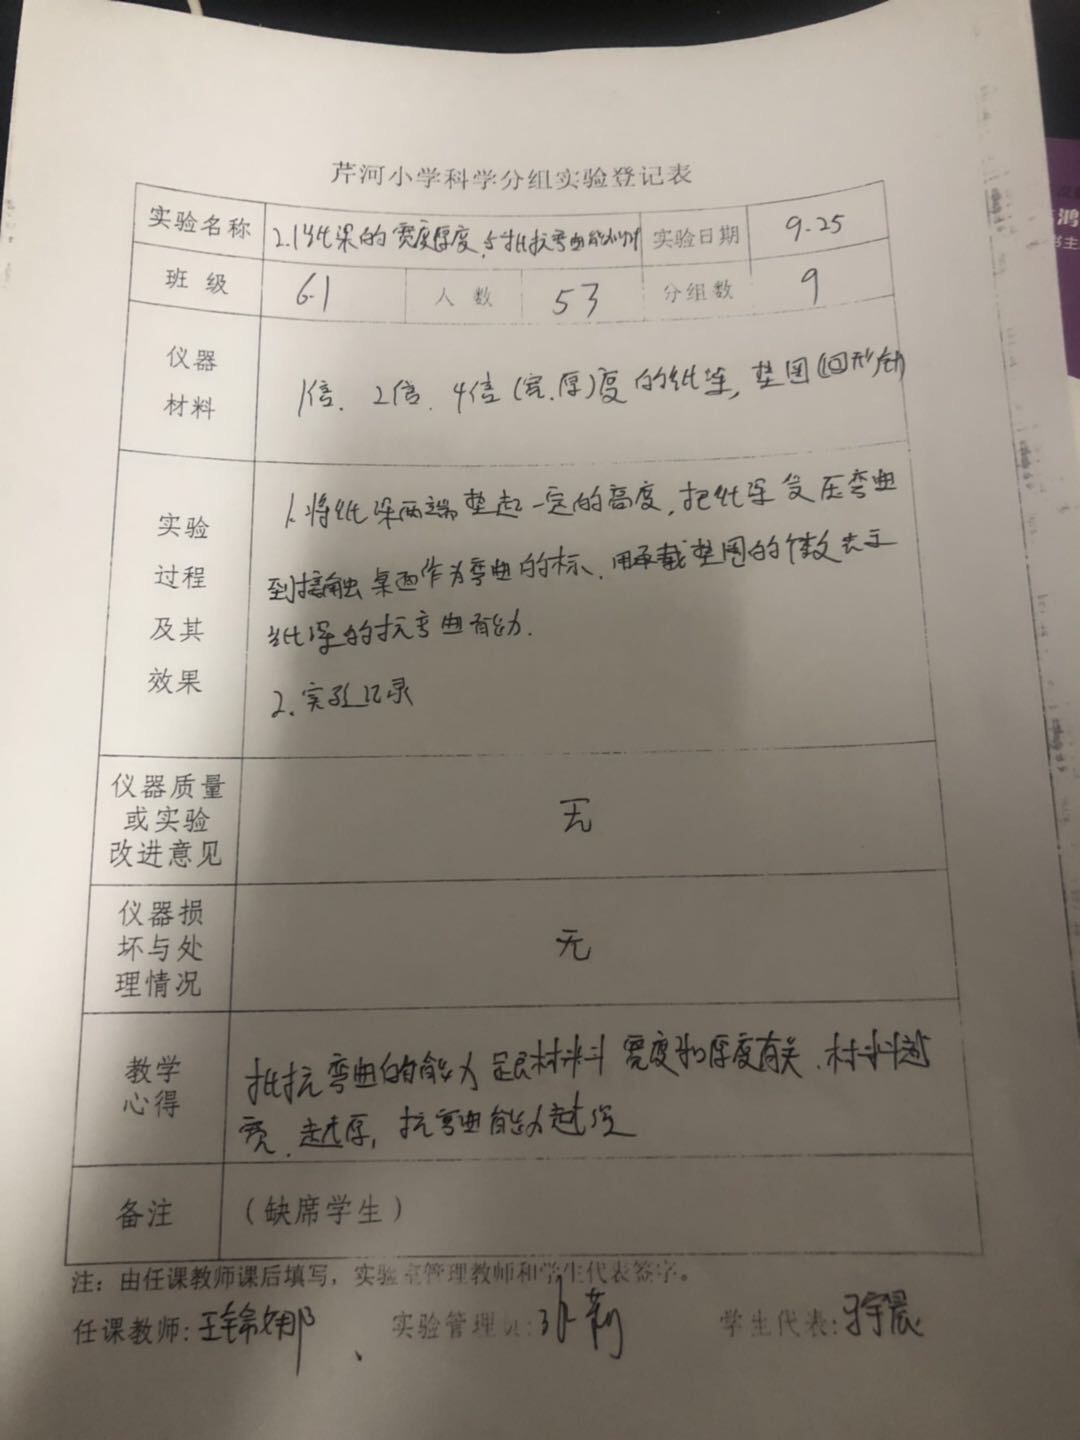 芹河小学科学分组实验登记表
实验名称 2.1 纸梁的宽度厚度与抗弯曲能力 实验日期 9.25
班级 6.1 人数 53 分组数 9
仪器
材料
1倍、2倍、4倍(宽、厚)度的纸梁,垫圈(回形针)
实验
过程
及其
效果
1.将纸梁两端垫起一定的高度,把纸梁受压弯曲
到接触桌面作为弯曲的标、用承载垫圈的个数表示
纸梁的抗弯曲能力.
2.实验记录
仪器质量
或实验
改进意见
无
仪器损
坏与处
理情况
无
教学
心得
抵抗弯曲的能力是跟材料宽度和厚度有关、材料越
宽、越厚,抗弯曲能力越强
备注 (缺席学生)
注:由任课教师课后填写,实验室管理教师和学生代表签字。
任课教师:王锦娜 实验管理员: 莉 学生代表: 宇晨